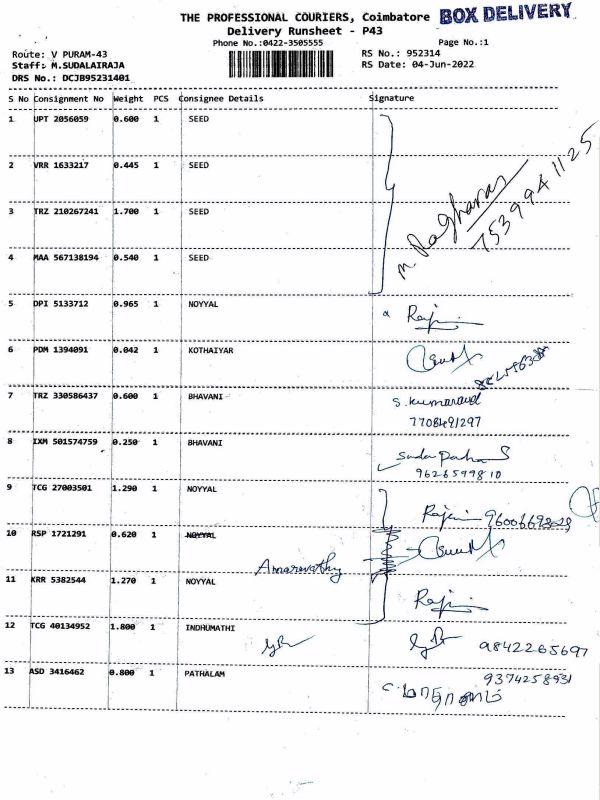 THE PROFESSIONAL COURIERS, Coimbatore BOX DELIVERY
Delivery Runsheet - P43
Phone No.:0422-3505555 Page No.:1
Route: V PURAM-43 RS No.: 952314
Staff: M.SUDALAIRAJA RS Date: 04-Jun-2022
DRS No.: DCJB95231401
S No Consignment No Weight PCS Consignee Details Signature
1 UPT 2056059 0.600 1 SEED
2 VRR 1633217 0.445 1 SEED
3 TRZ 210267241 1.700 1 SEED
M. Ragharan
7539941125
4 MAA 567138194 0.540 1 SEED
5 DPI 5133712 0.965 1 NOYYAL
6 PDM 1394091 0.042 1 KOTHAIYAR
7 TRZ 330586437 0.600 1 BHAVANI S. Kumaravel
7708491297
8 IXM 501574759 0.250 1 BHAVANI
9626599810
9 TCG 27003501 1.290 1 NOYYAL
10 RSP 1721291 0.620 1 NOYYAL
Amaravathy
11 KRR 5382544 1.270 1 NOYYAL
12 TCG 40134952 1.800 1 INDHUMATHI
9842265697
13 ASD 3416462 0.800 1 PATHALAM 9374258931